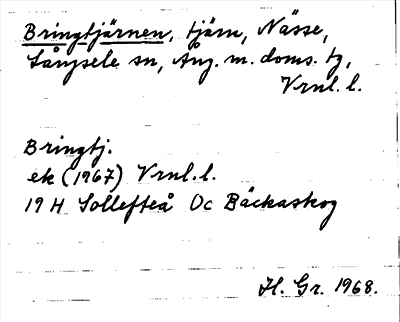 Bringtjärnen, tjärn, Nässe,
Långsele sn, Ång. m. doms. tg,
Vrnl. l.
Bringtj.
ek (1967) Vrnl. l.
19 H Sollefteå Oc Bäckaskog
H. Gr. 1968.